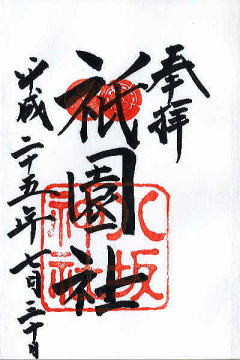 奉拝
祇園社
八坂神社
平成二十五年七月三十日